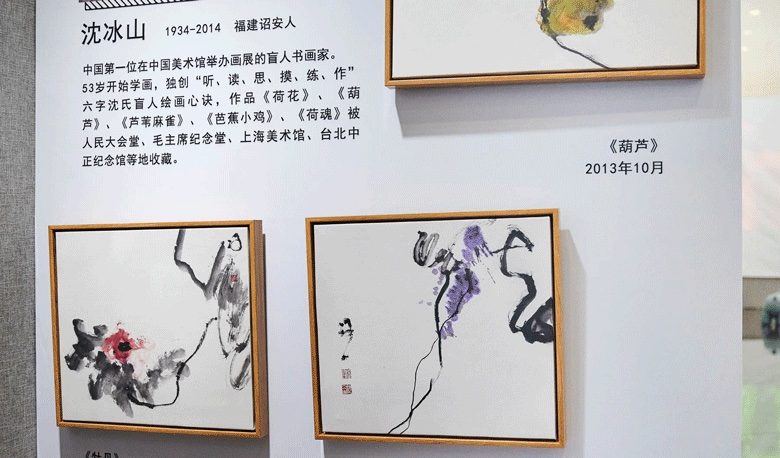 沈冰山 1934-2014 福建诏安人
中国第一位在中国美术馆举办画展的盲人书画家。
53岁开始学画，独创“听、读、思、摸、练、作”
六字沈氏盲人绘画心诀，作品《荷花》、《葫
芦》、《芦苇麻雀》、《芭蕉小鸡》、《荷魂》被
人民大会堂、毛主席纪念堂、上海美术馆、台北中
正纪念馆等地收藏。
《葫芦》
2013年10月
《牡丹》